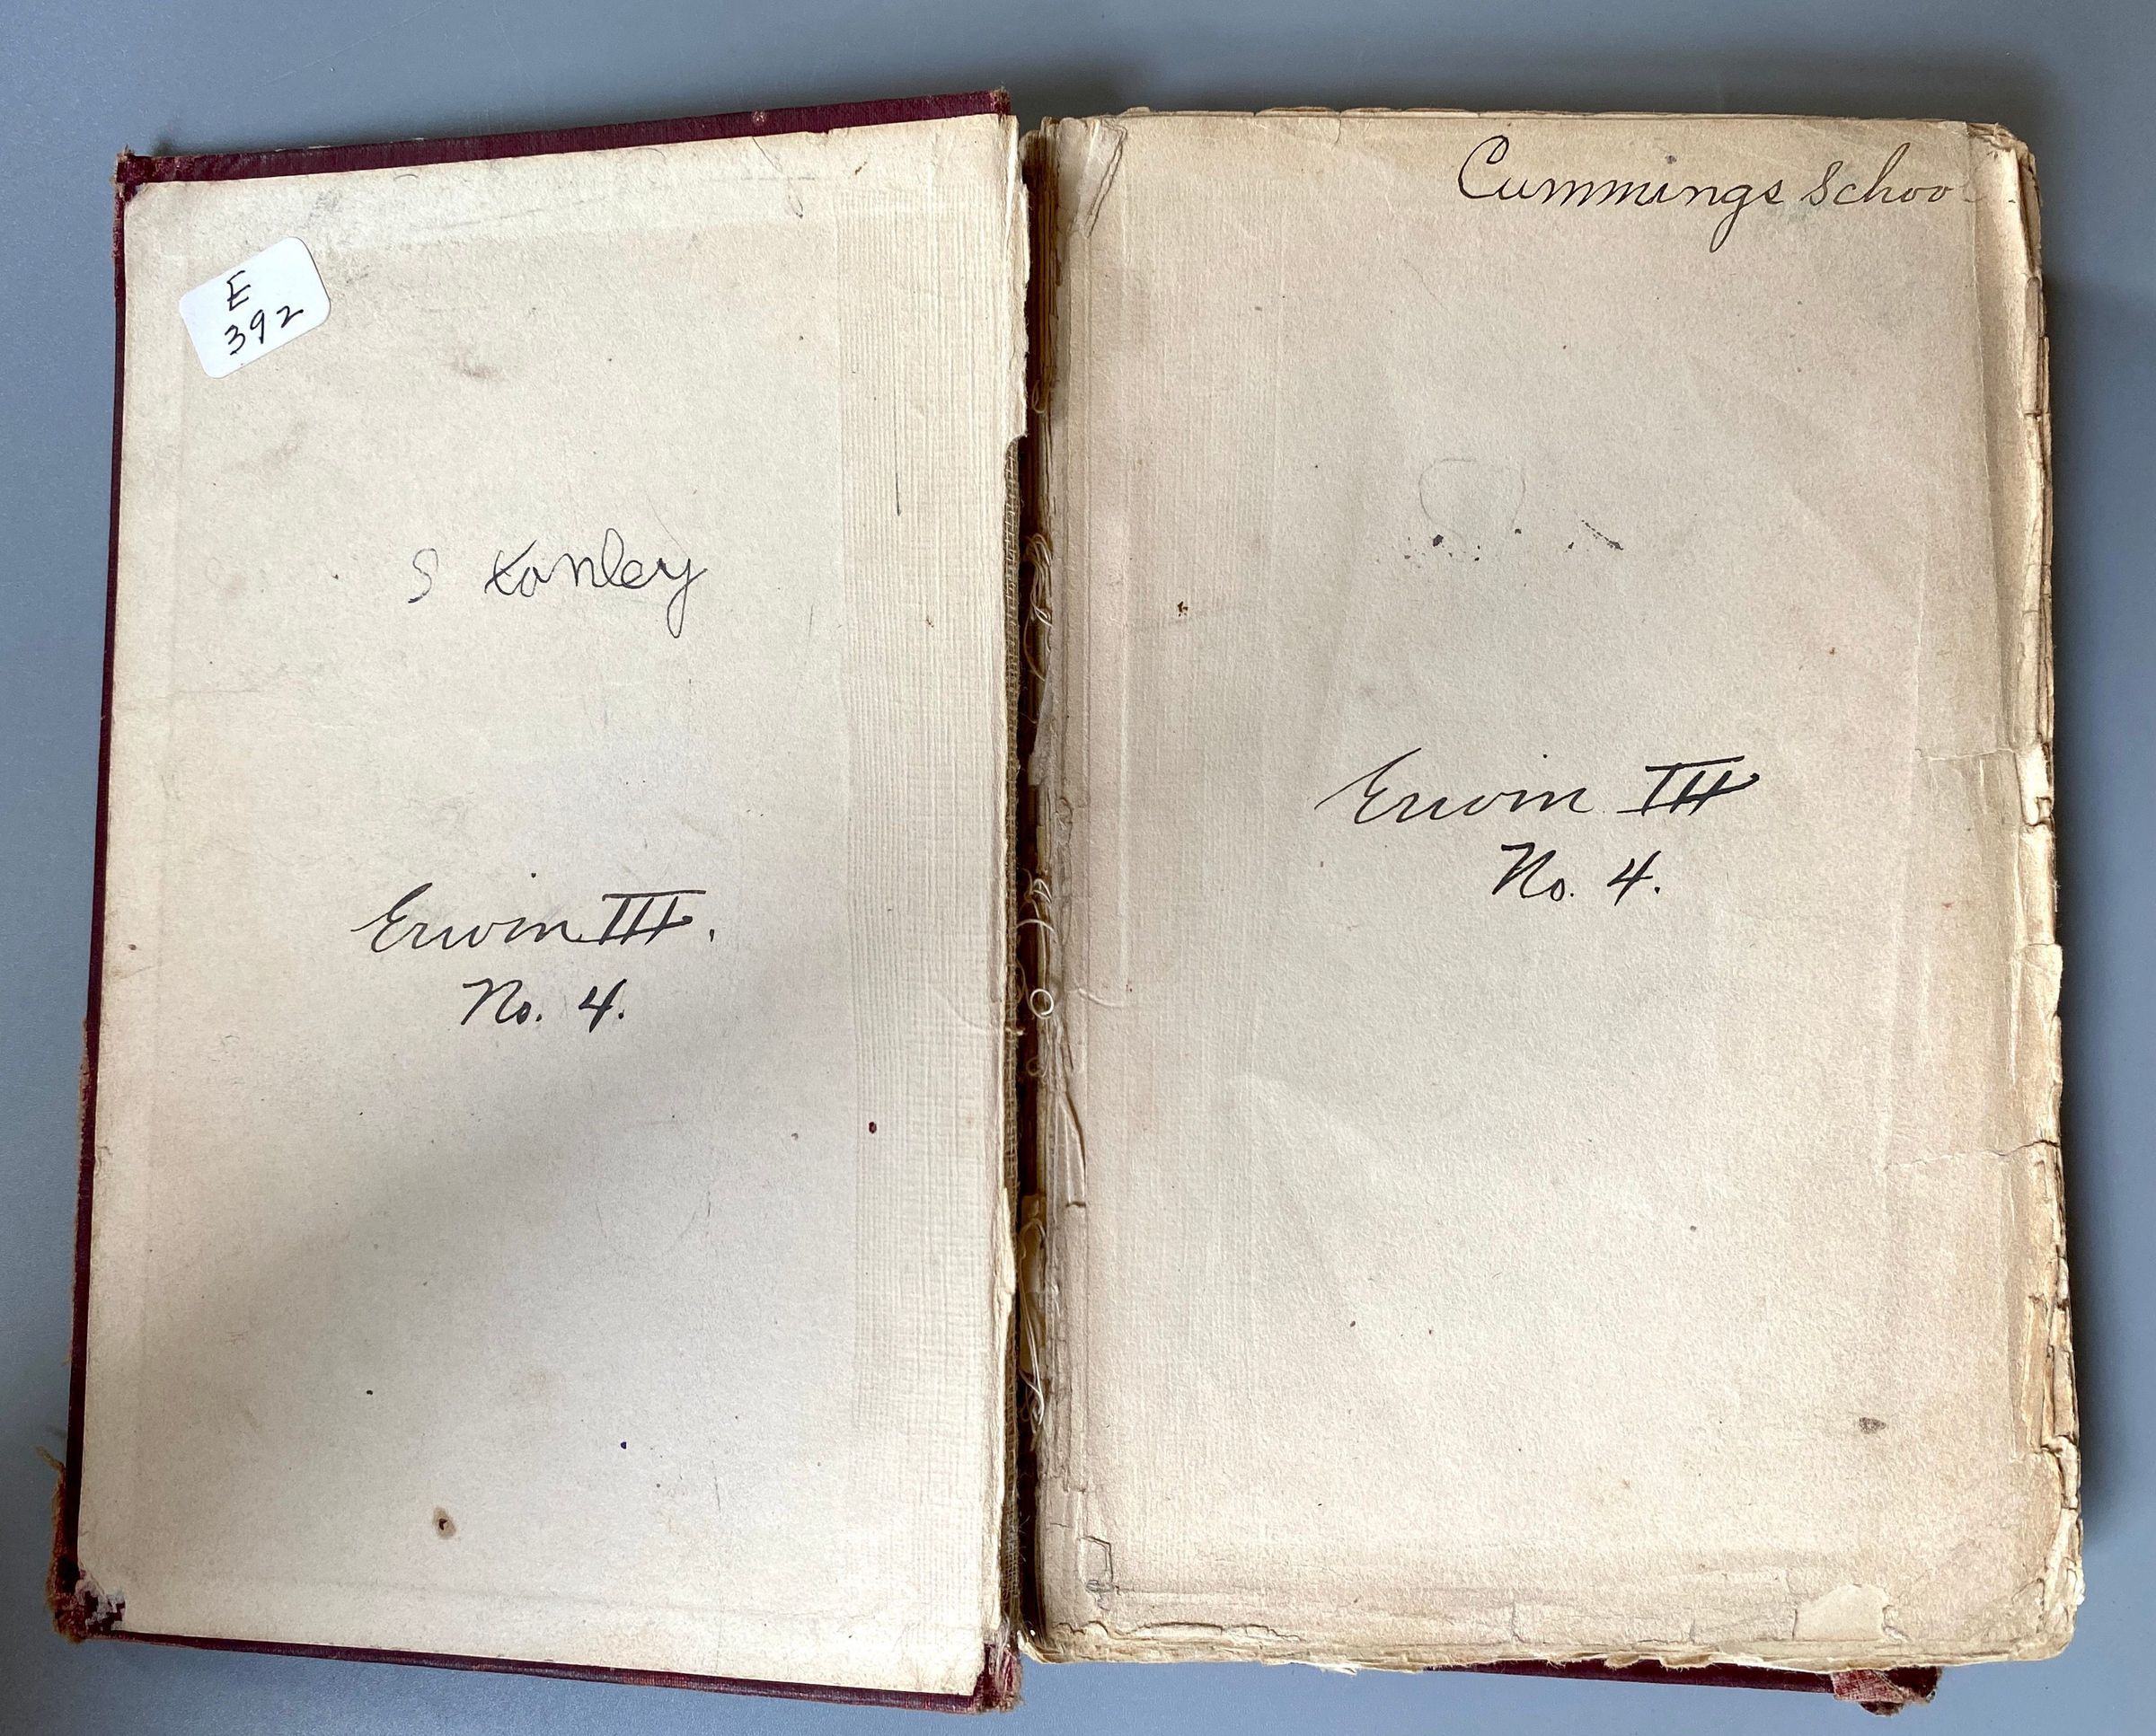 E
392
S tanley
Erwin III.
No. 4.
Cummings School
Erwin III
No. 4.